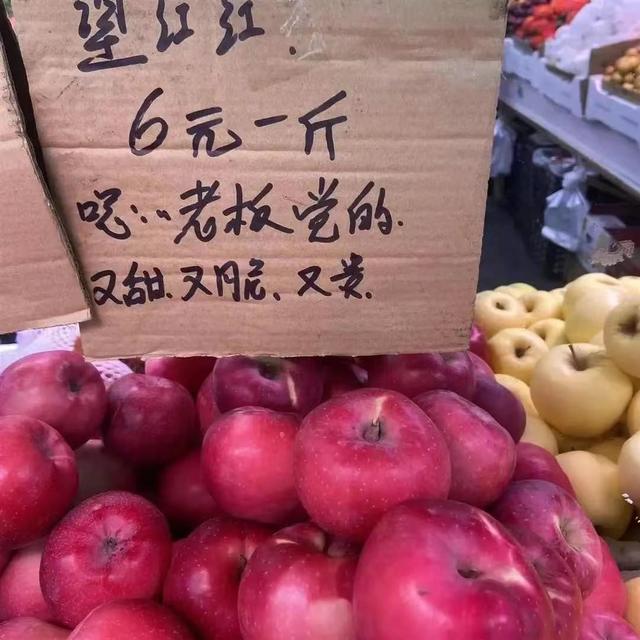 红红.
6元一斤
呃…老板觉的.
又甜.又脆、又贵.